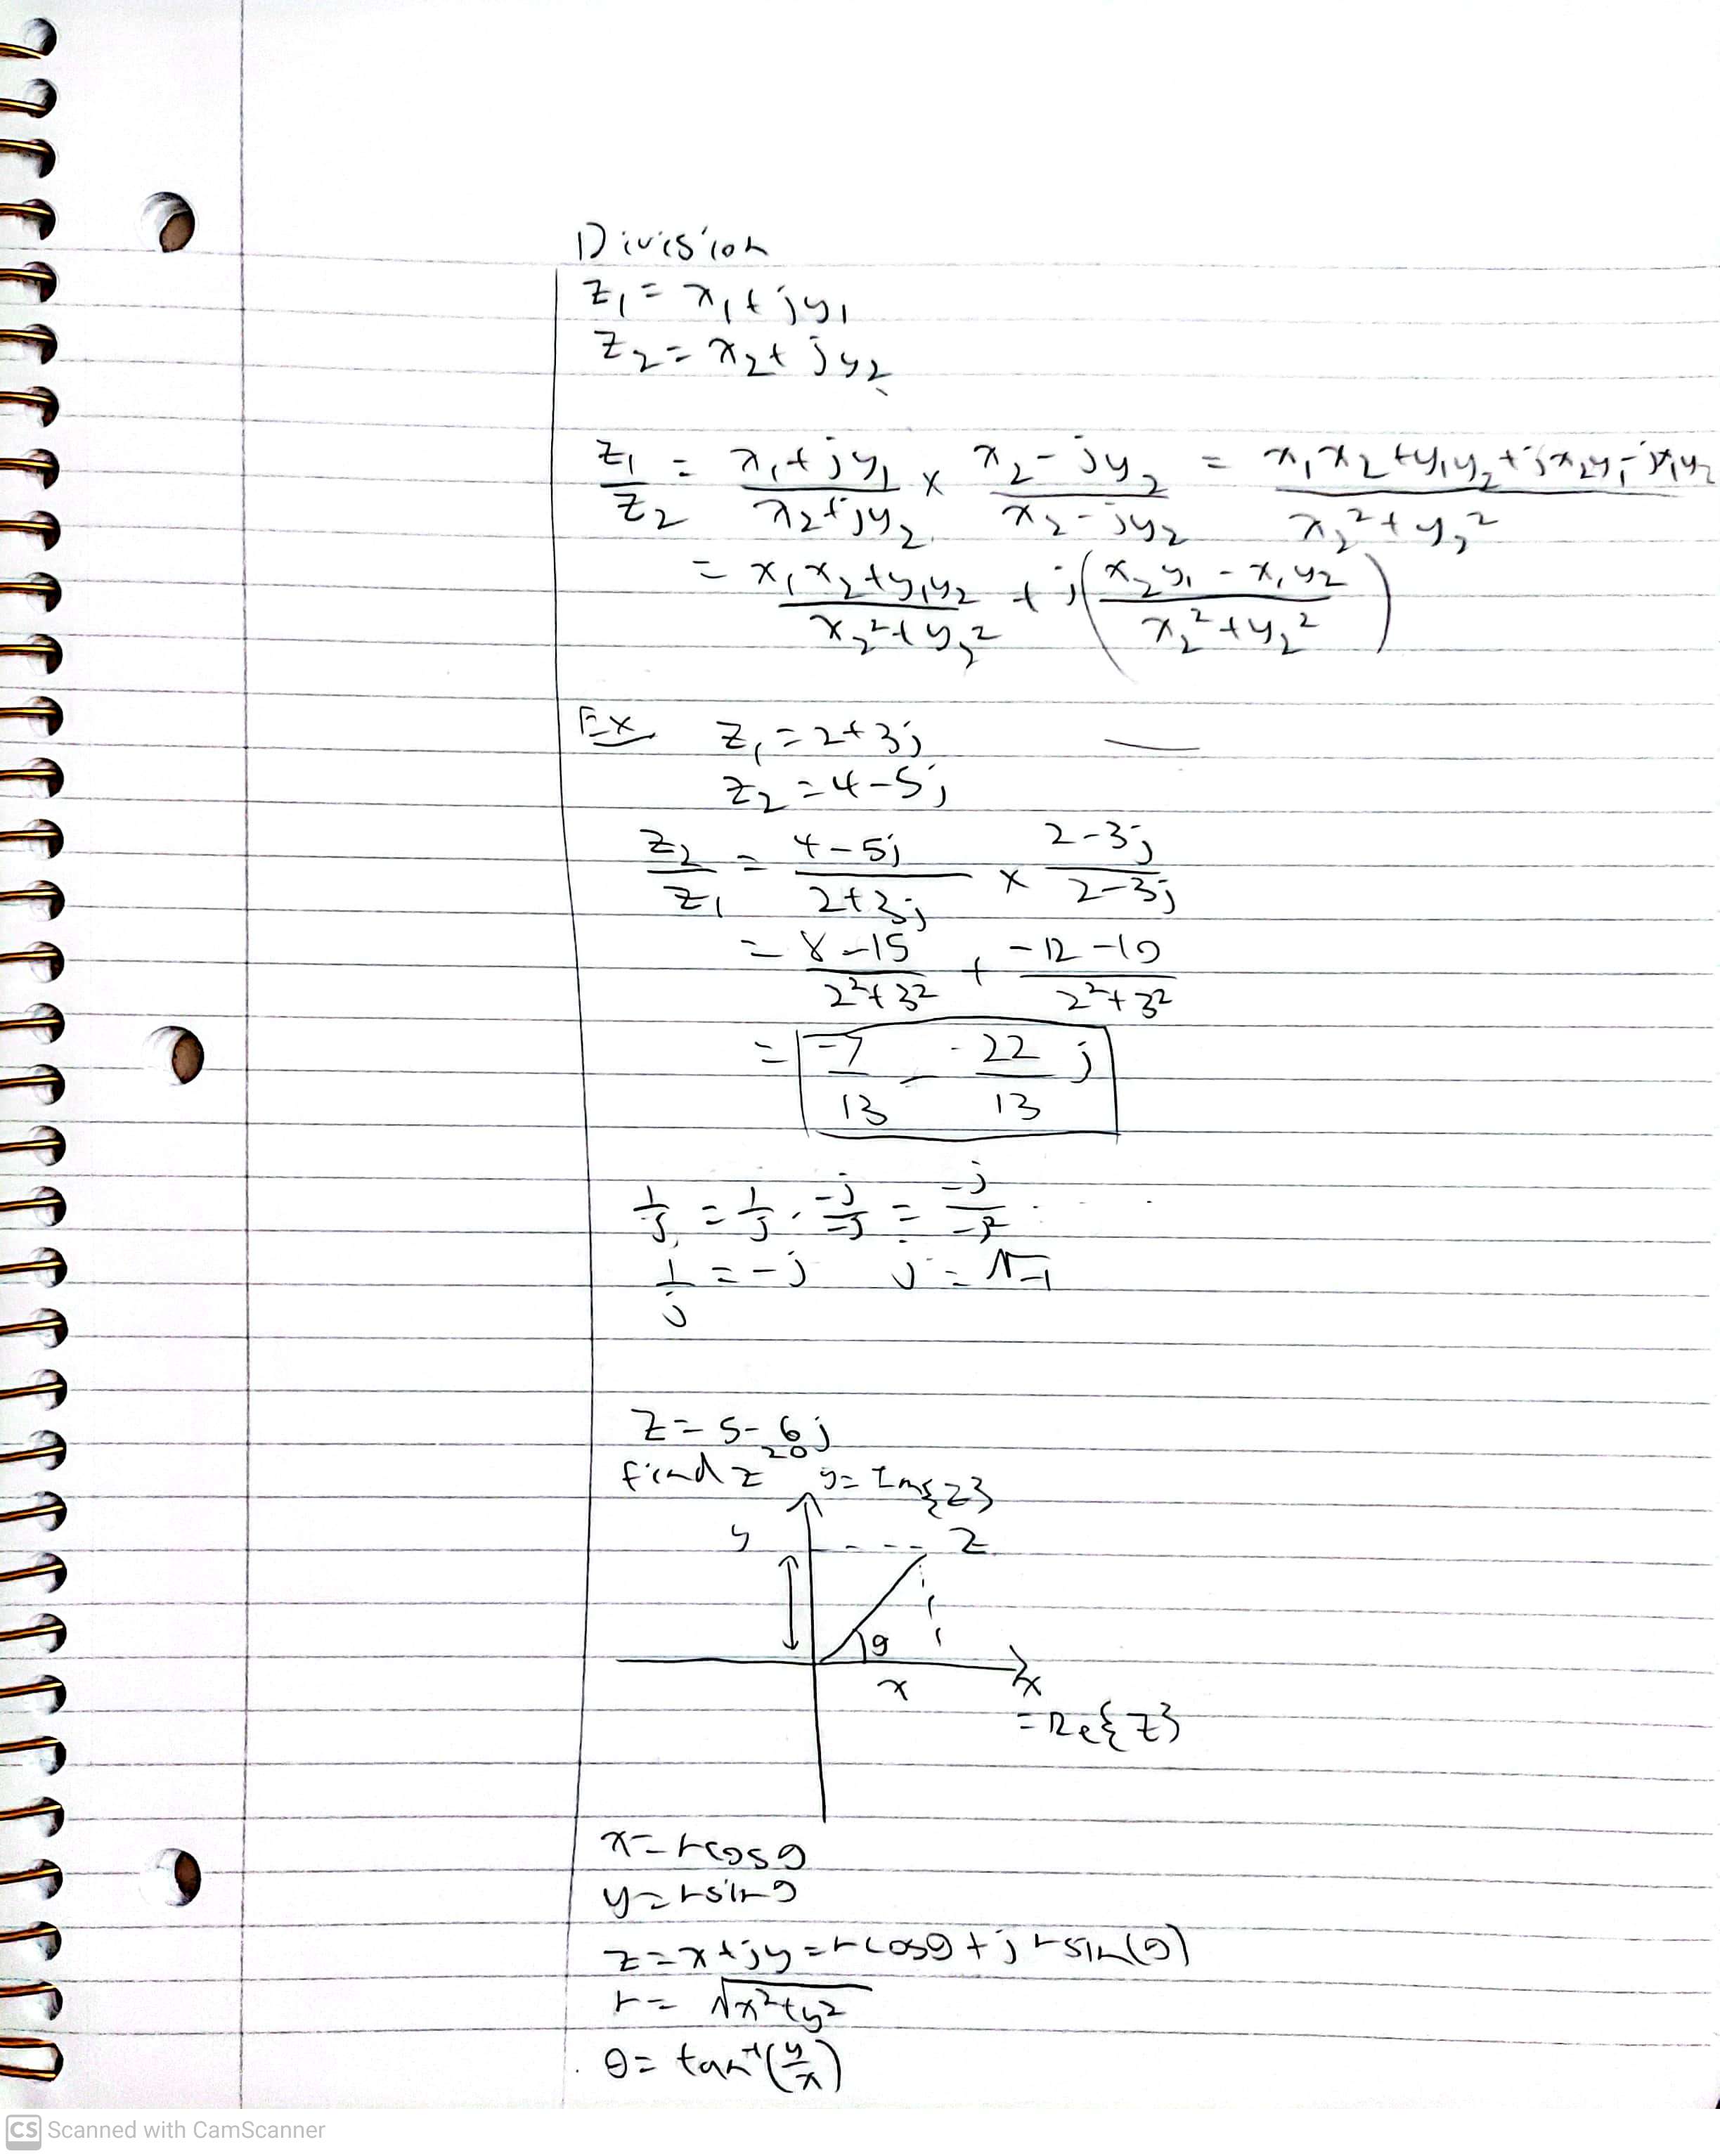 Division
z₁ = x₁ + jy₁
z₂ = x₂ + jy₂
z₁/z₂ = (x₁ + jy₁)/(x₂ + jy₂) × (x₂ - jy₂)/(x₂ - jy₂) = (x₁x₂ + y₁y₂ + jx₂y₁ - jx₁y₂)/(x₂² + y₂²)
= (x₁x₂ + y₁y₂)/(x₂² + y₂²) + j((x₂y₁ - x₁y₂)/(x₂² + y₂²))
Ex z₁ = 2 + 3j
z₂ = 4 - 5j
z₂/z₁ = (4 - 5j)/(2 + 3j) × (2 - 3j)/(2 - 3j)
= (8 - 15)/(2² + 3²) + (-12 - 10)/(2² + 3²)
= -7/13 - -22/13 j
1/j = 1/j · -j/-j = -j/-j²
1/j = -j j = √-1
z = 5 - 6j
find z²⁰ y = Im{z}
y z
θ
x x
= Re{z}
x = rcosθ
y = rsinθ
z = x + jy = rcosθ + jrsin(θ)
r = √x² + y²
θ = tan⁻¹(y/x)
CS Scanned with CamScanner